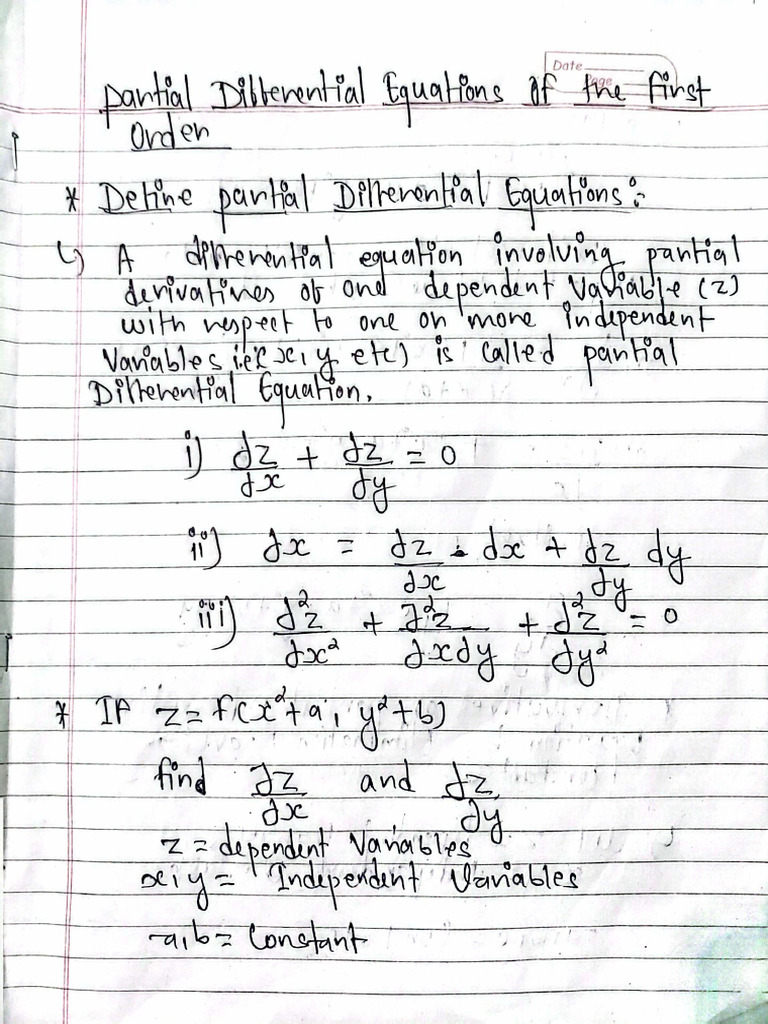 Date
Page
Partial Differential Equations of the First
Order
* Define partial Differential Equations :-
↳ A differential equation involving partial
derivatives of one dependent Variable (z)
with respect to one or more independent
Variables i.e(x, y etc) is called partial
Differential Equation.
i) ∂z/∂x + ∂z/∂y = 0
ii) ∂x = ∂z/∂x . dx + ∂z/∂y dy
iii) ∂²z/∂x² + ∂²z/∂x∂y + ∂²z/∂y² = 0
* If z = f(x²+a, y²+b)
find ∂z/∂x and ∂z/∂y
z = dependent Variables
x, y = Independent Variables
a, b = Constant